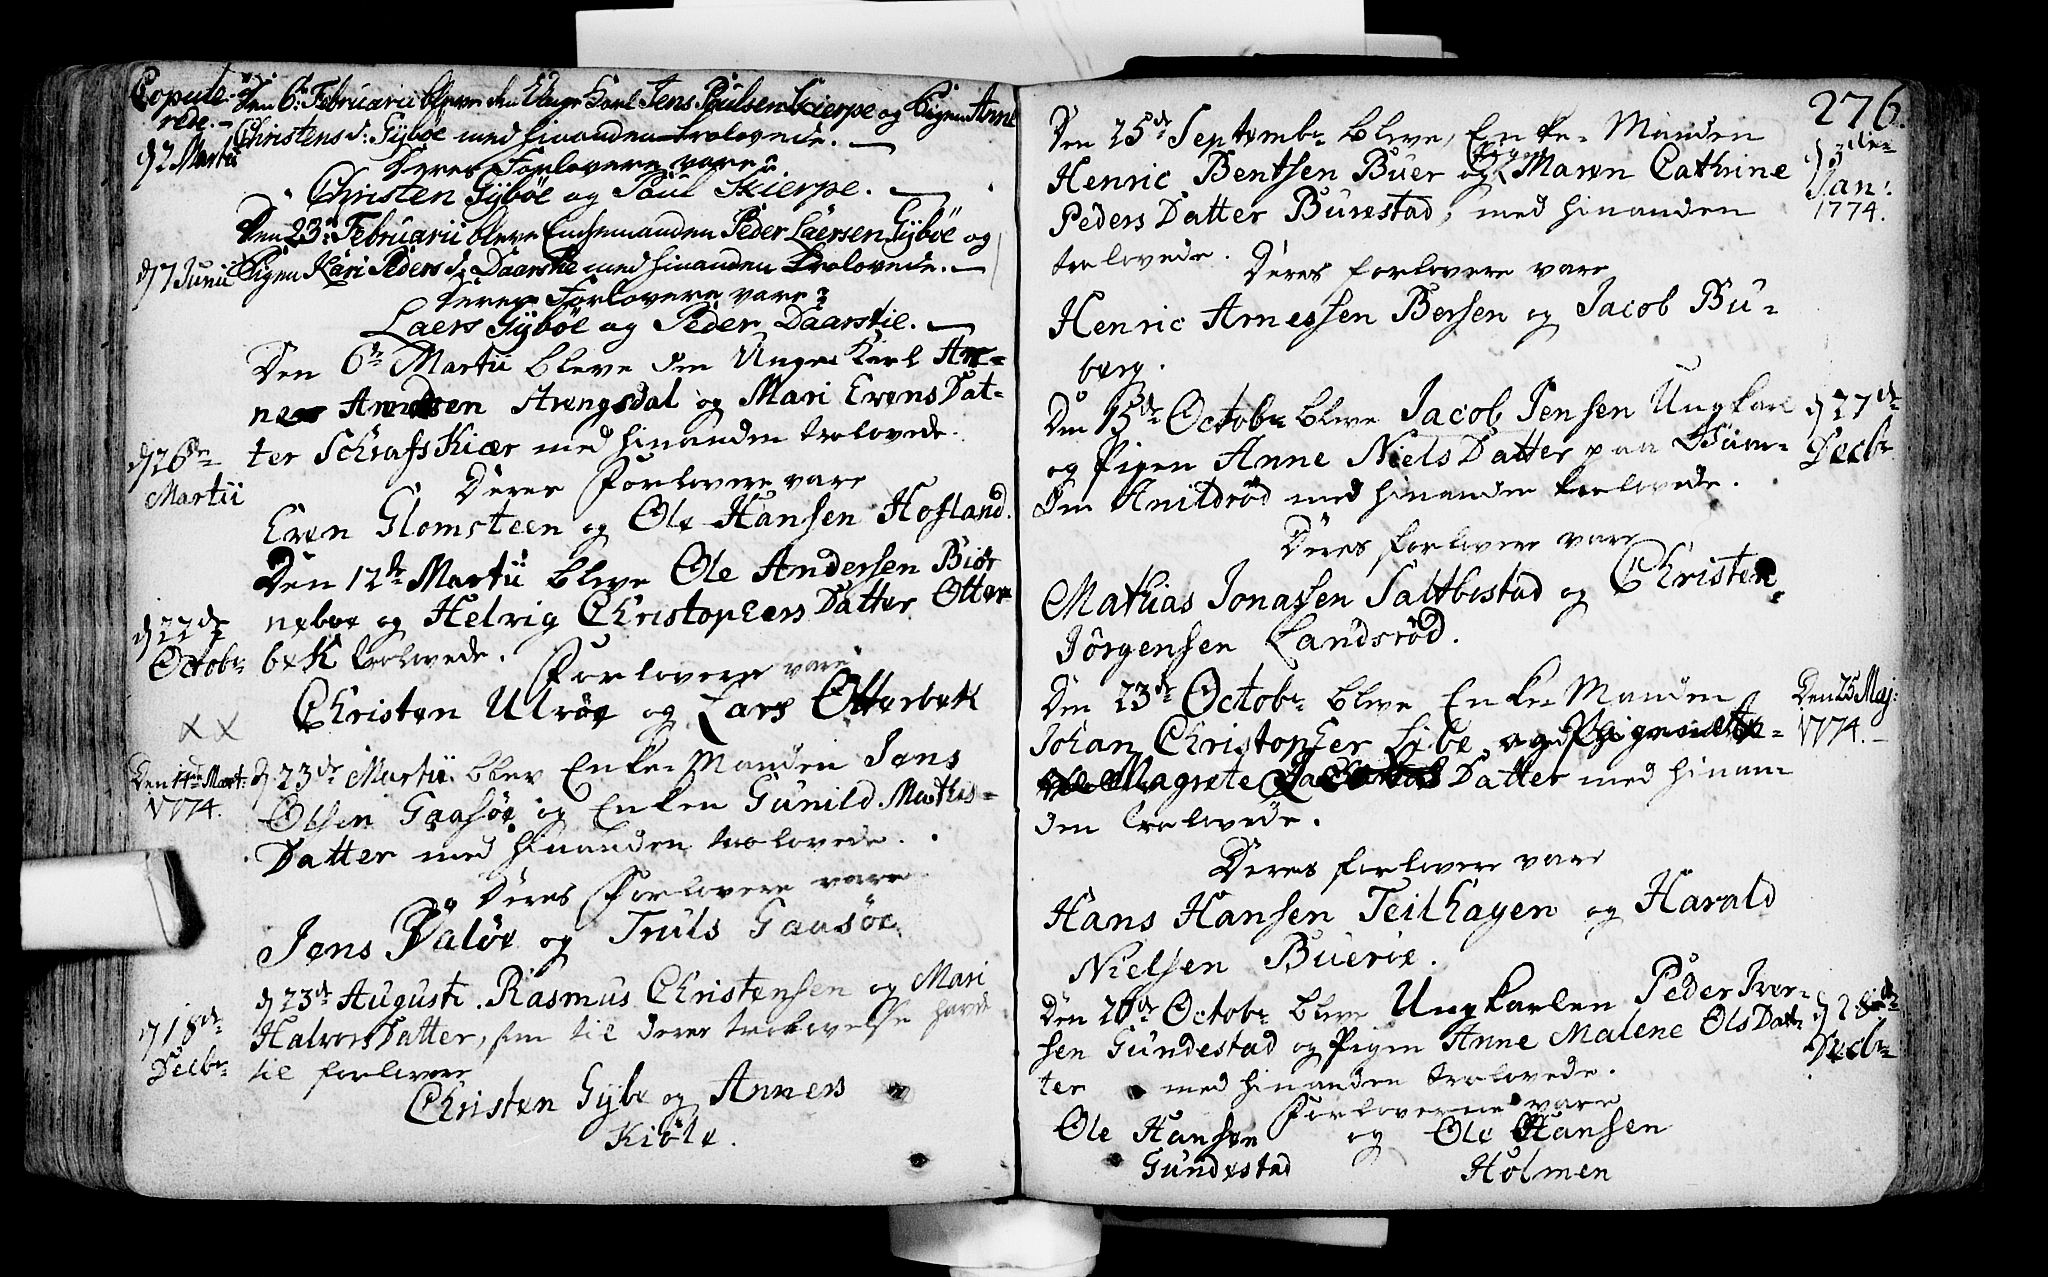 Copule-
rede.-
Den 6: Februarii bleve den Unge Karl Jens Poulsen Skierpe og Pigen Anne
Christens d: Gyböe med hinanden trolovede.
d 2 Martii
Deres Forlovere vare:
Christen Gyböe og Poul Skierpe.
Den 23: Februarii bleve Enckemanden Peder Laersen Gyböe og
d 7 Junii Pigen Kari Peders d: Daarstie med hinanden trolovede.
Deres Forlovere vare:
Laers Gyböe og Peder Daarstie.
Den 6te Martii bleve den Unge Karl Ar-
ne Arnesen Arengsdal og Mari Evens Dat-
d 26de
Martii
ter Schrafs Kiær med hinanden trolovede.
Deres Forlovere vare
Even Glomsteen og Ole Hansen Hofland.
Den 12te Martii bleve Ole Andersen Biör
neboe og Helvig Christophers Datter Otter
d 22de
Octobr
bek trolovede.
Forlovere vare
Christen Ulröe og Lars Otterbek
x x
Den 14de Mart:
1774.
d. 23de Martii blev Enke-Manden Jens
Olsen Gaasöe og Enken Gunild Mathis-
Datter med hinanden trolovede.
Deres Forlovere vare
Jens Valöe og Truls Gaasöe
d 23de Augusti Rasmus Christensen og Mari
d 18de
Decbr
Halvors Datter, som til deres trolovelse havde
til forlovere
Christen Gybe og Anners
Kiöle.
276.
Den 25de Septembr bleve, Enke-Manden
Henric Bentsen Buer og Pigen Maren Cathrine
Jan:
1774.
Peders Datter Burestad, med hinanden
trolovede.
Deres forlovere vare
Henric Arnessen Bersen og Jacob Bu-
berg.
Den 15de Octobr bleve Jacob Jensen Ungkarl
d 27de
Decbr
og Pigen Anne Niels Datter paa
Anildröd med hinanden trolovede.
Deres forlovere vare
Mathias Jonassen Saltbestad og Christen
Jörgensen Landsröd.
Den 23de Octobr bleve Enke-Manden
Den 25 Maj:
1774.
Johan Christopher Lybe og Pigen
Magrete Datter med hinan-
den trolovede.
Deres forlovere vare
Hans Hansen Teilhagen og Harald
Nielsen Buerie.
Den 26de Octobr bleve Ungkarlen Peder Iver-
d 28de
Decbr
sen Gundestad og Pigen Anne Malene Ols Dat-
ter med hinanden trolovede.
Forloverne vare
Ole Hansen og Ole Hansen
Gundestad Holmen